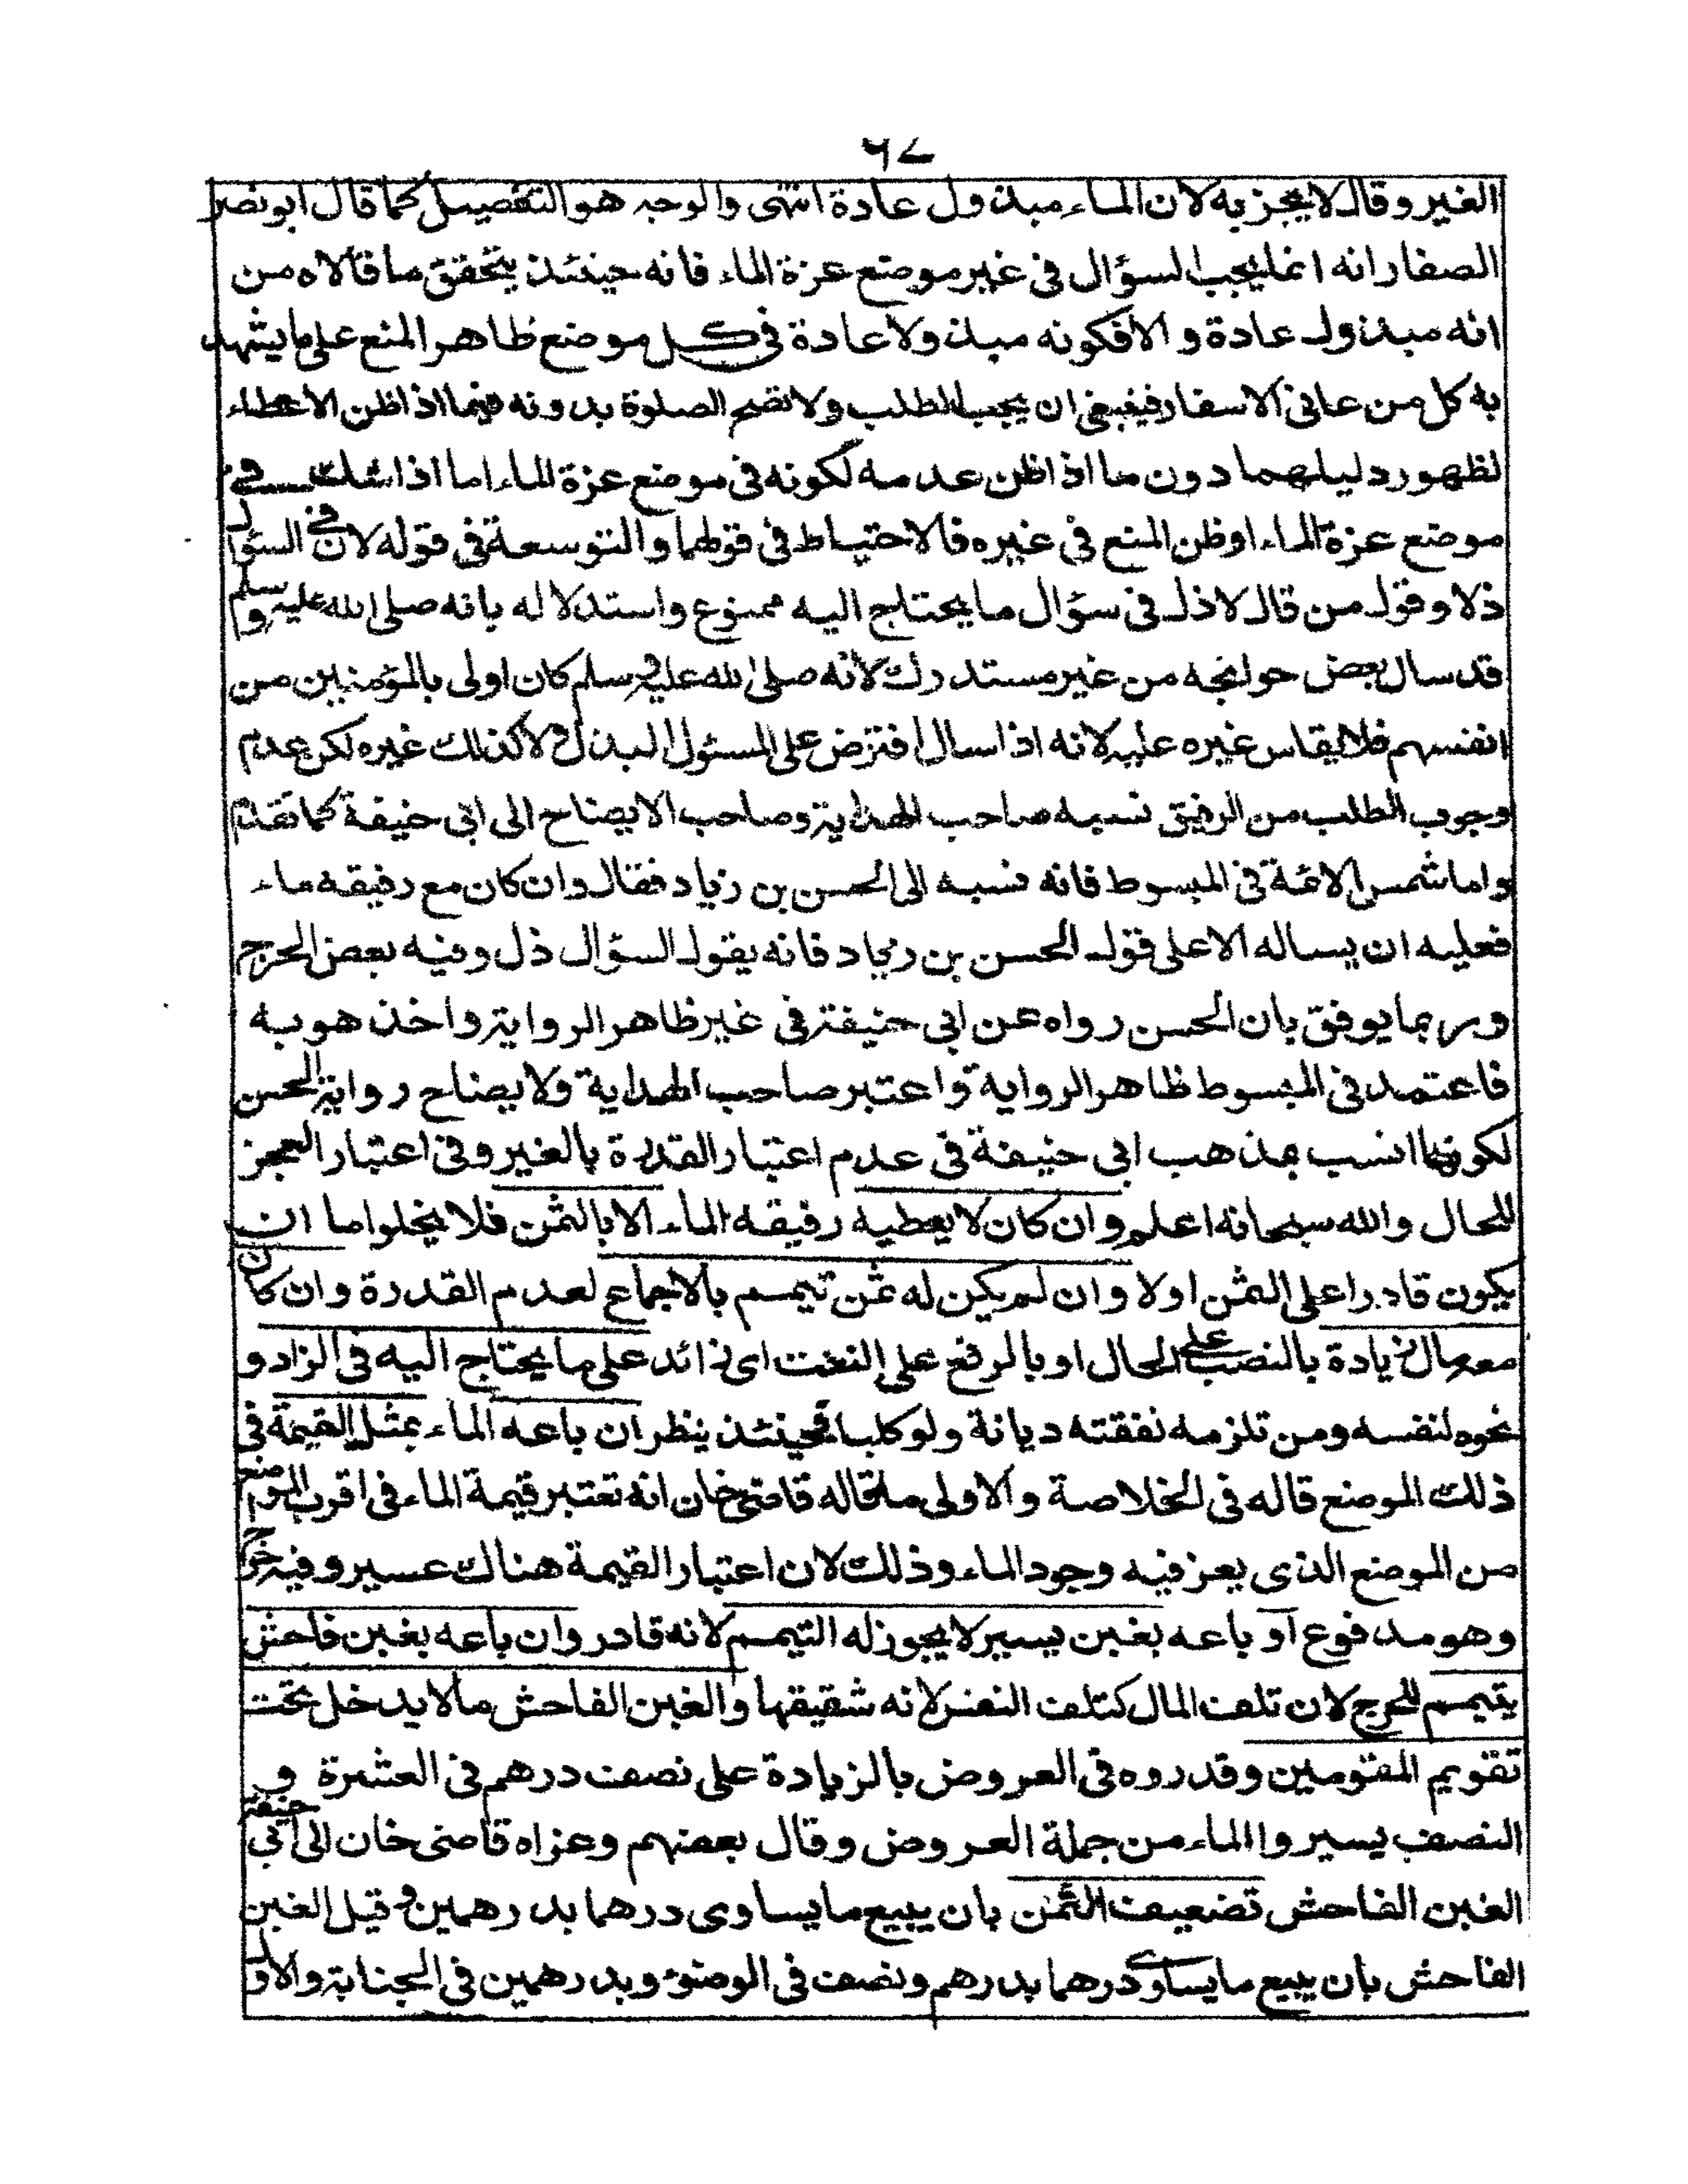 ٦٧
الغير وقالا لا يجزيه لان الماء مبذول عادة انتهى والوجه هو التفصيل كما قال ابو نصر
الصفار انه انما يجب السؤال فى غير موضع عزة الماء فانه حينئذ يتحقق ما قالاه من
انه مبذول عادة و الا فكونه مبذولا عادة فى كل موضع ظاهر المنع على ما يشهد
به كل من عانى الاسفار فينبغى ان يجب الطلب ولا تصح الصلوة بدونه فيما اذا ظن الاعطاء
لظهور دليلهما دون ما اذا ظن عدمه لكونه فى موضع عزة الماء اما اذا شك فى
موضع عزة الماء او ظن المنع فى غيره فالاحتياط فى قولهما والتوسعة فى قوله لان فى السؤال
ذلا وقول من قال لا ذل فى سؤال ما يحتاج اليه ممنوع واستدلاله بانه صلى الله عليه وسلم
قد سال بعض حوائجه من غير مستدرك لانه صلى الله عليه وسلم كان اولى بالمؤمنين من
انفسهم فلا يقاس غيره عليه لانه اذا سال افترض على المسئول البذل ولا كذلك غيره لكن عدم
وجوب الطلب من الرفيق نسبه صاحب الهداية وصاحب الايضاح الى ابى حنيفة كما تقدم
واما شمس الائمة فى المبسوط فانه نسبه الى الحسن بن زياد فقال وان كان مع رفيقه ماء
فعليه ان يساله الا على قول الحسن بن زياد فانه يقول السؤال ذل وفيه بعض الحرج
وربما يوفق بان الحسن رواه عن ابى حنيفة فى غير ظاهر الرواية واخذ هو به
فاعتمد فى المبسوط ظاهر الرواية واعتبر صاحب الهداية ولايضاح رواية الحسن
لكونها انسب بمذهب ابى حنيفة فى عدم اعتبار القدرة بالغير وفى اعتبار العجز
للحال والله سبحانه اعلم وان كان لا يعطيه رفيقه الماء الا بالثمن فلا يخلوا ما ان
يكون قادرا على الثمن اولا وان لم يكن له ثمن تيمم بالاجماع لعدم القدرة وان كان
معه مال زيادة بالنصب على الحال او بالرفع على النعت اى زائد على ما يحتاج اليه فى الزاد و
نحوه لنفسه ومن تلزمه نفقته ديانة ولو كلبا فحينئذ ينظر ان باعه الماء بمثل القيمة فى
ذلك الموضع قاله فى الخلاصة والاولى ما قاله قاضى خان انه تعتبر قيمة الماء فى اقرب المواضع
من الموضع الذى يعز فيه وجود الماء وذلك لان اعتبار القيمة هناك عسير وفيه حرج
وهو مدفوع او باعه بغبن يسير لا يجوز له التيمم لانه قادر وان باعه بغبن فاحش
يتيمم للحرج لان تلف المال كتلف النفس لانه شقيقها والغبن الفاحش ما لا يدخل تحت
تقويم المقومين وقدروه فى العروض بالزيادة على نصف درهم فى العشرة و
النصف يسير واالماء من جملة العروض وقال بعضهم وعزاه قاضى خان الى ابى حنيفة
الغبن الفاحش تضعيف الثمن بان يبيع ما يساوى درهما بدرهمين وقيل الغبن
الفاحش بان يبيع ما يساوى درهما بدرهم ونصف فى الوضوء وبدرهمين فى الجنابة والاول